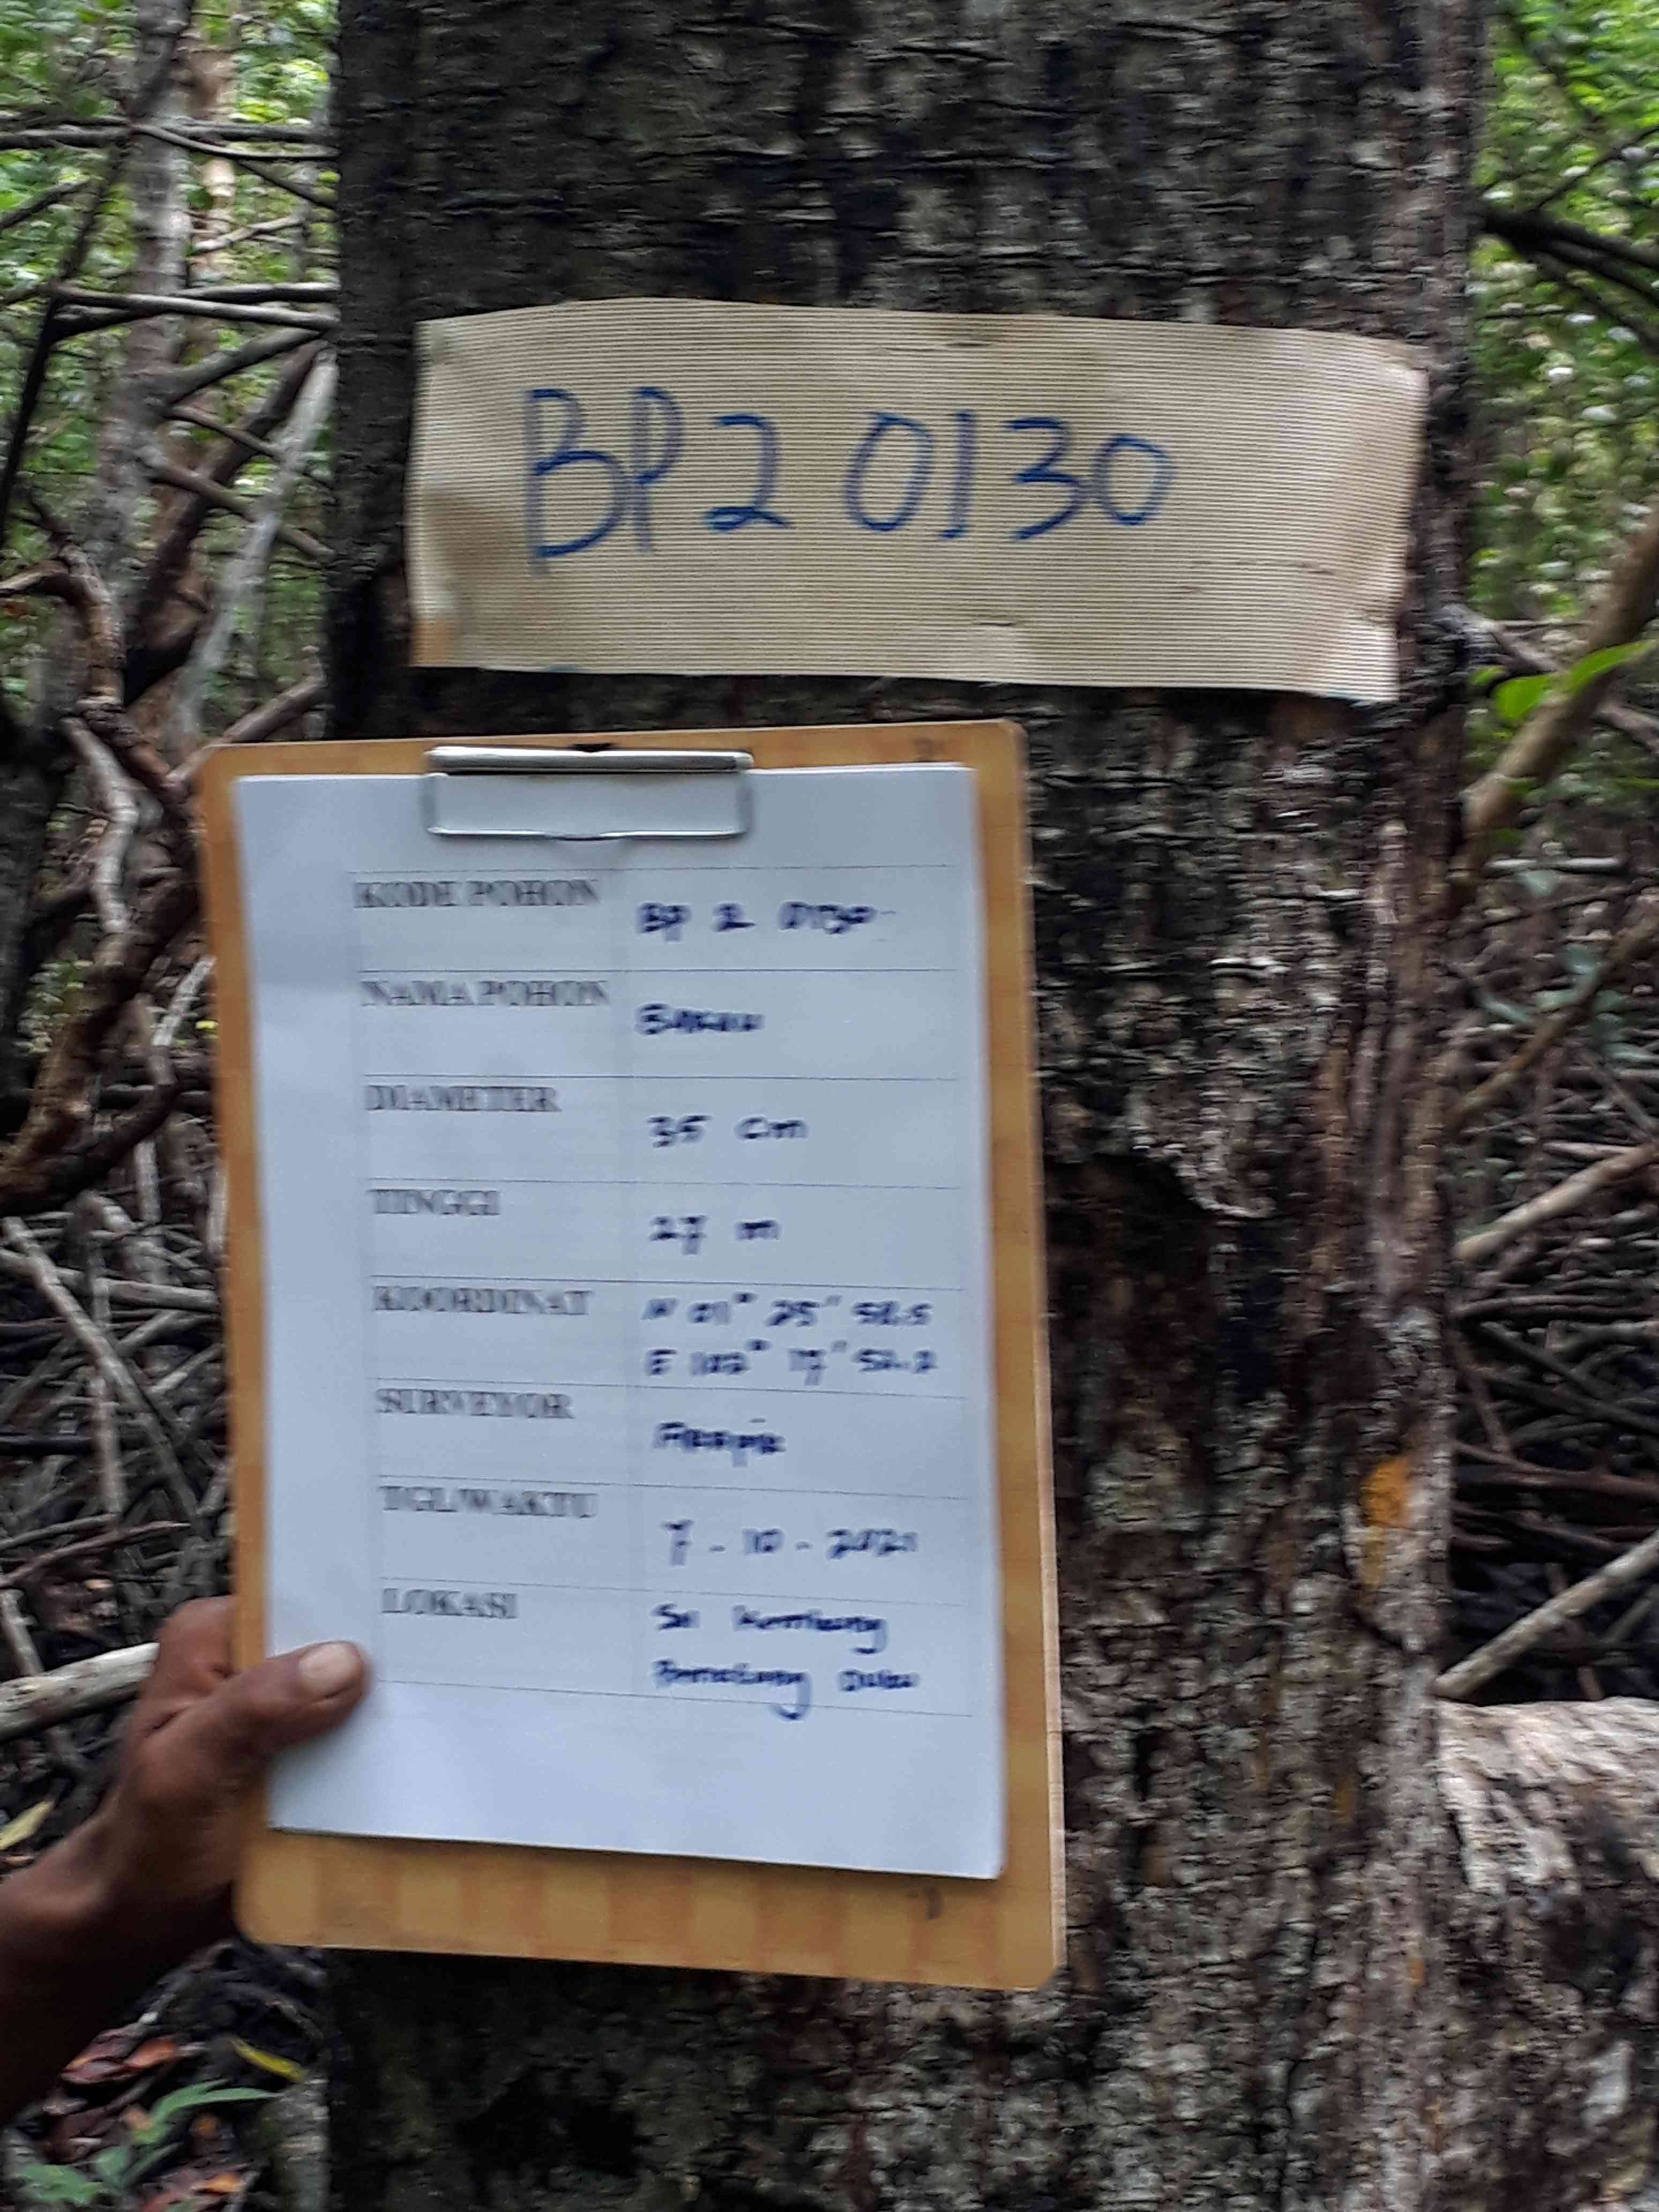 BP2 0130
KODE POHON
BP 2 0130
NAMA POHON
BAKAU
DIAMETER
35 cm
TINGGI
27 m
KOORDINAT
N 01° 25'
E 102° 17' 52.2
SURVEYOR
TGL/WAKTU
7 - 10 - 2021
LOKASI